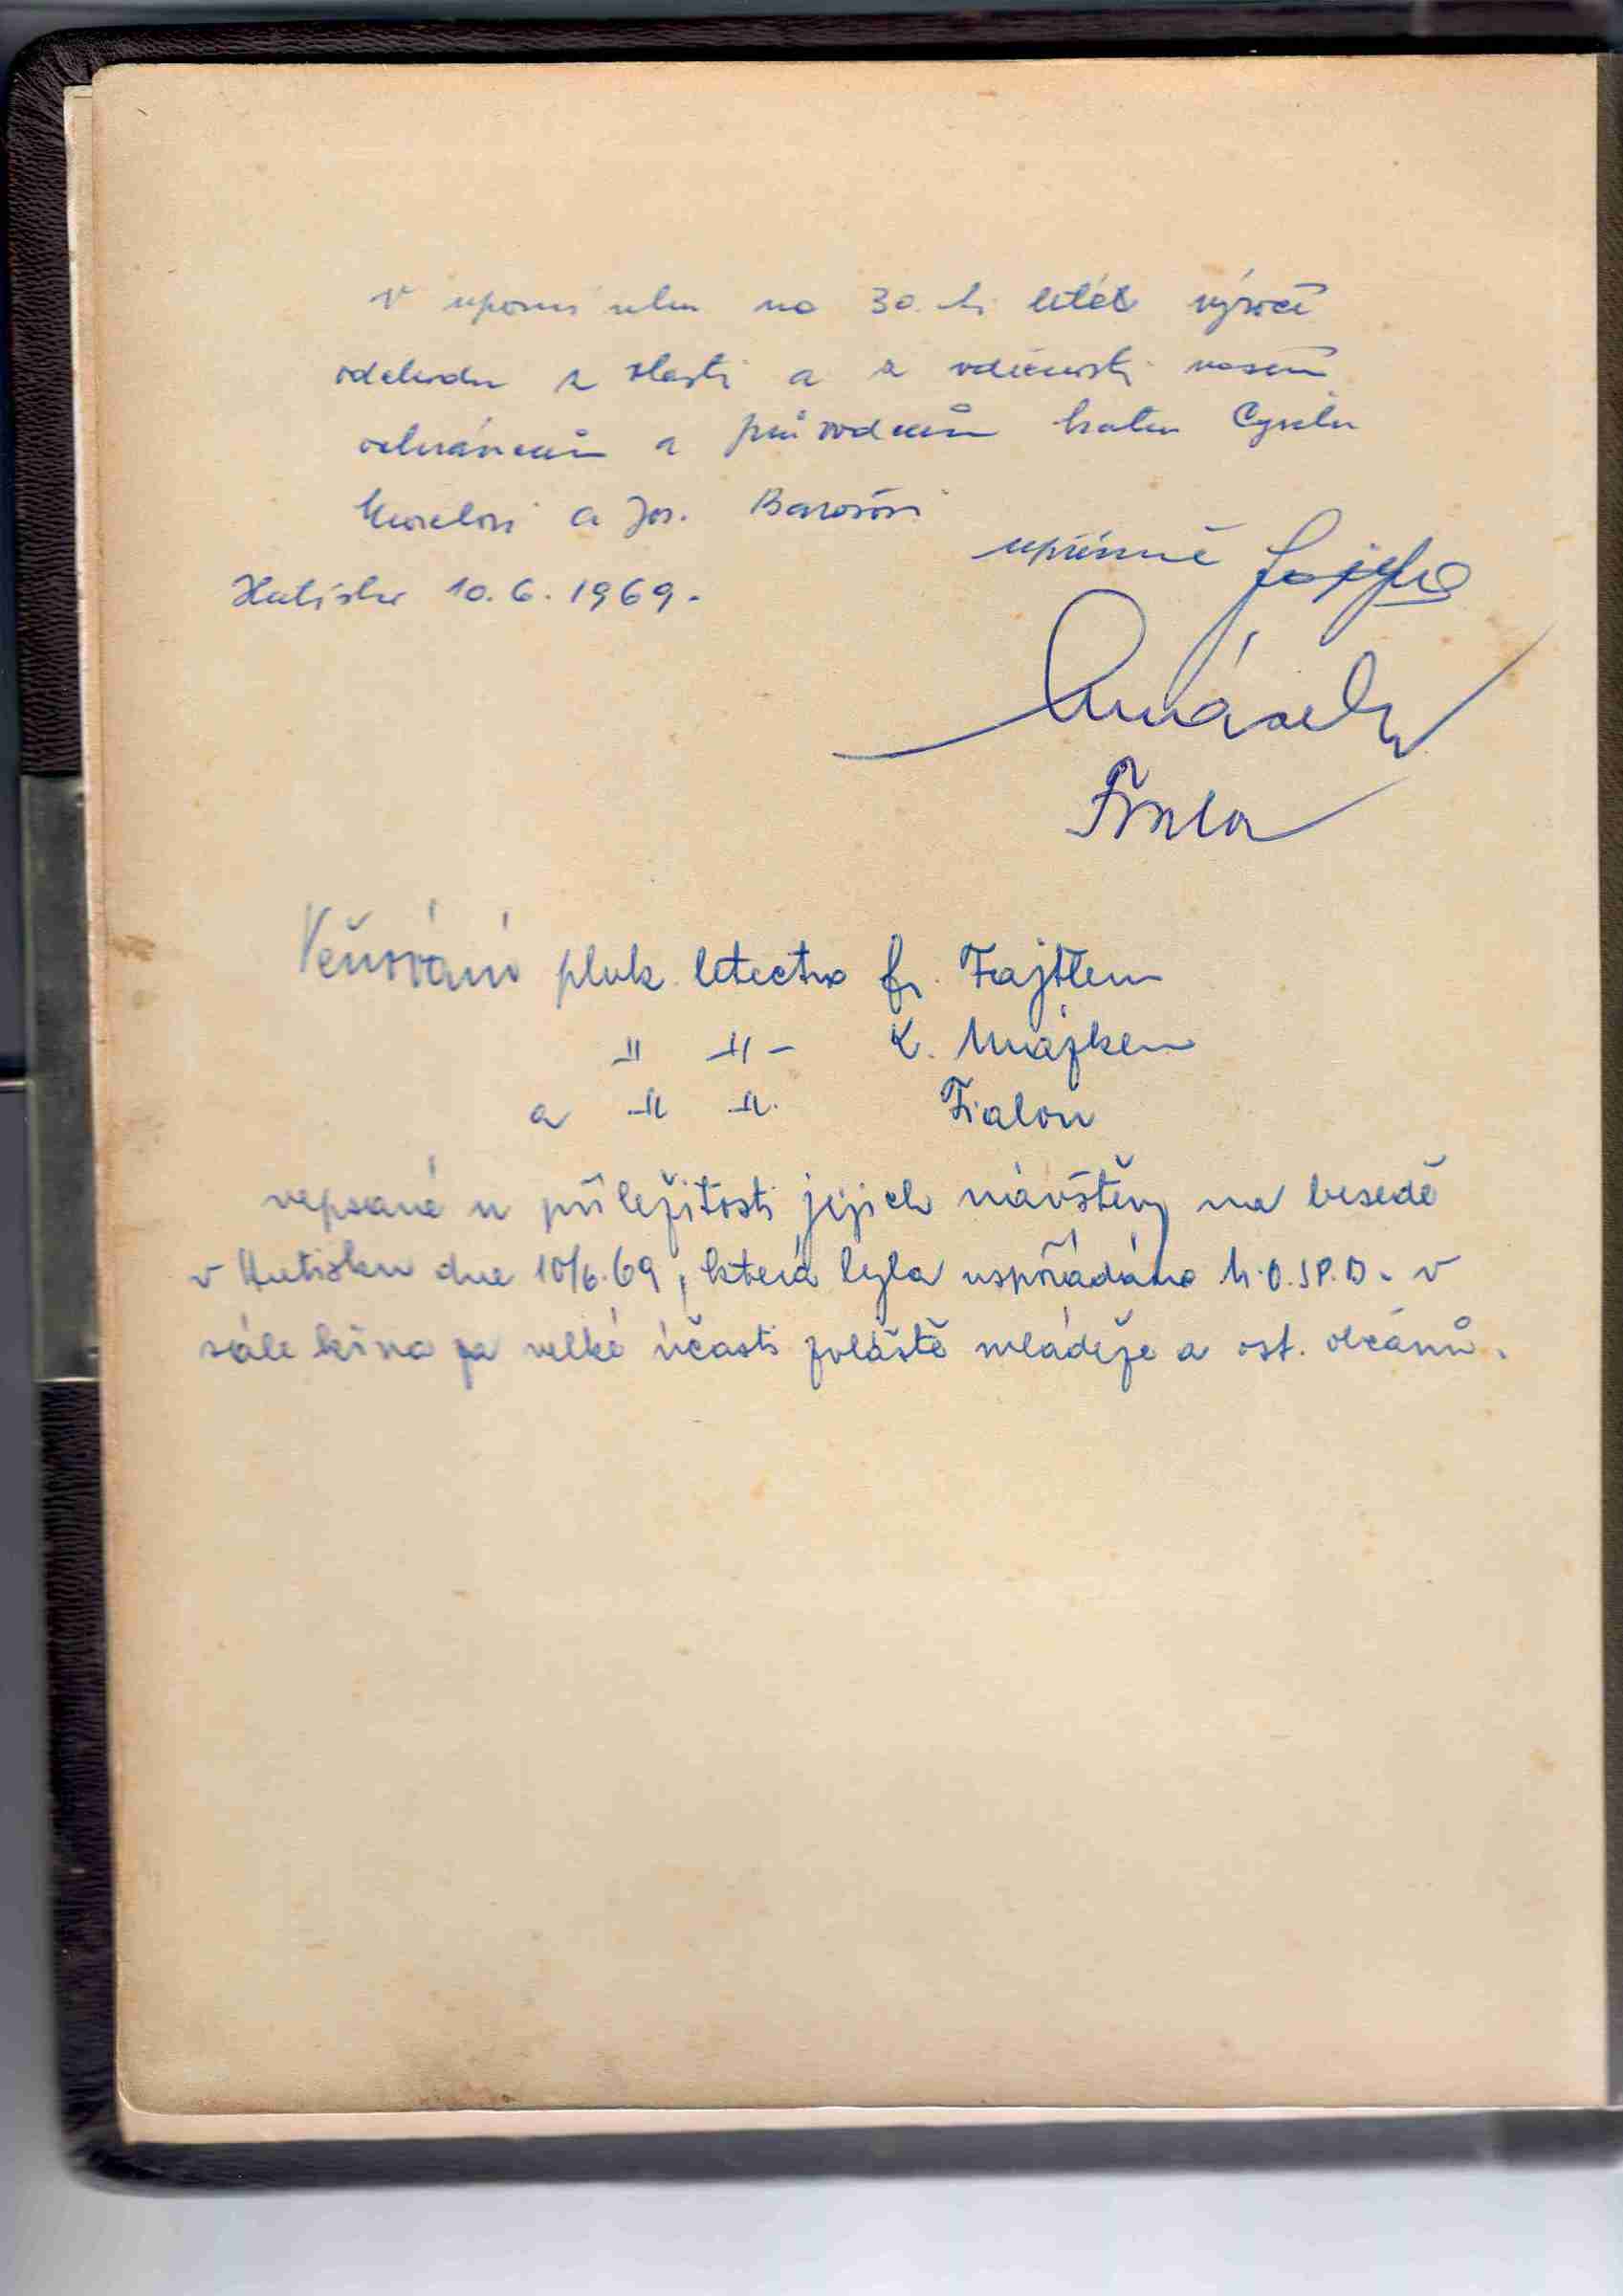 V upomínku na 30.ti leté výročí
odchodu z vlasti a z vděčnosti našim
ochráncům a průvodcům bratru Cyrilu
a Jos. Barošovi
upřímně Fajtl
Hutisko 10.6.1969.
Mrázek
Fiala
Věnování pluk. letectva fr. Fajtlem
" " - K. Mrázkem
a " " Fialou
vepsané u příležitosti jejich návštěvy na besedě
v Hutisku dne 10/6.69, která byla uspořádána M.O.SP.B. v
sále kina za velké účasti zvláště mládeže a ost. občanů.